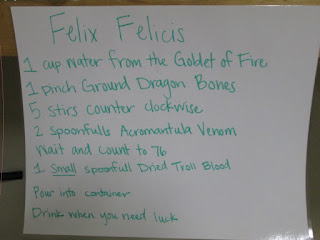 Felix Felicis
1 cup water from the Goblet of Fire
1 pinch Ground Dragon Bones
5 stirs counter clockwise
2 spoonfulls Acromantula Venom
Wait and count to 76
1 Small spoonfull Dried Troll Blood
Pour into container
Drink when you need luck